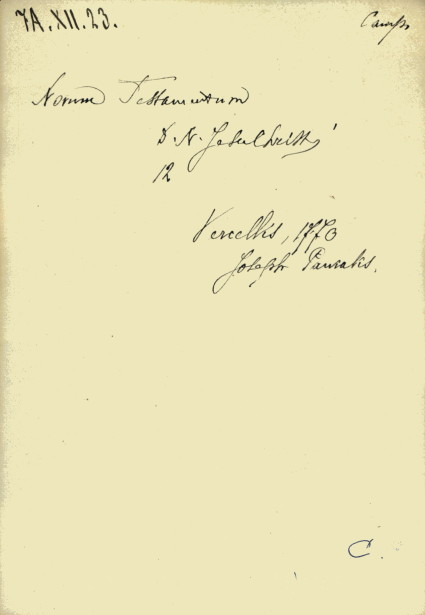 7A.XII.23.
Camps
Novum Testamentum
D. N. Jesu Christi
12
Vercellis, 1770
Joseph Panialis.
C.